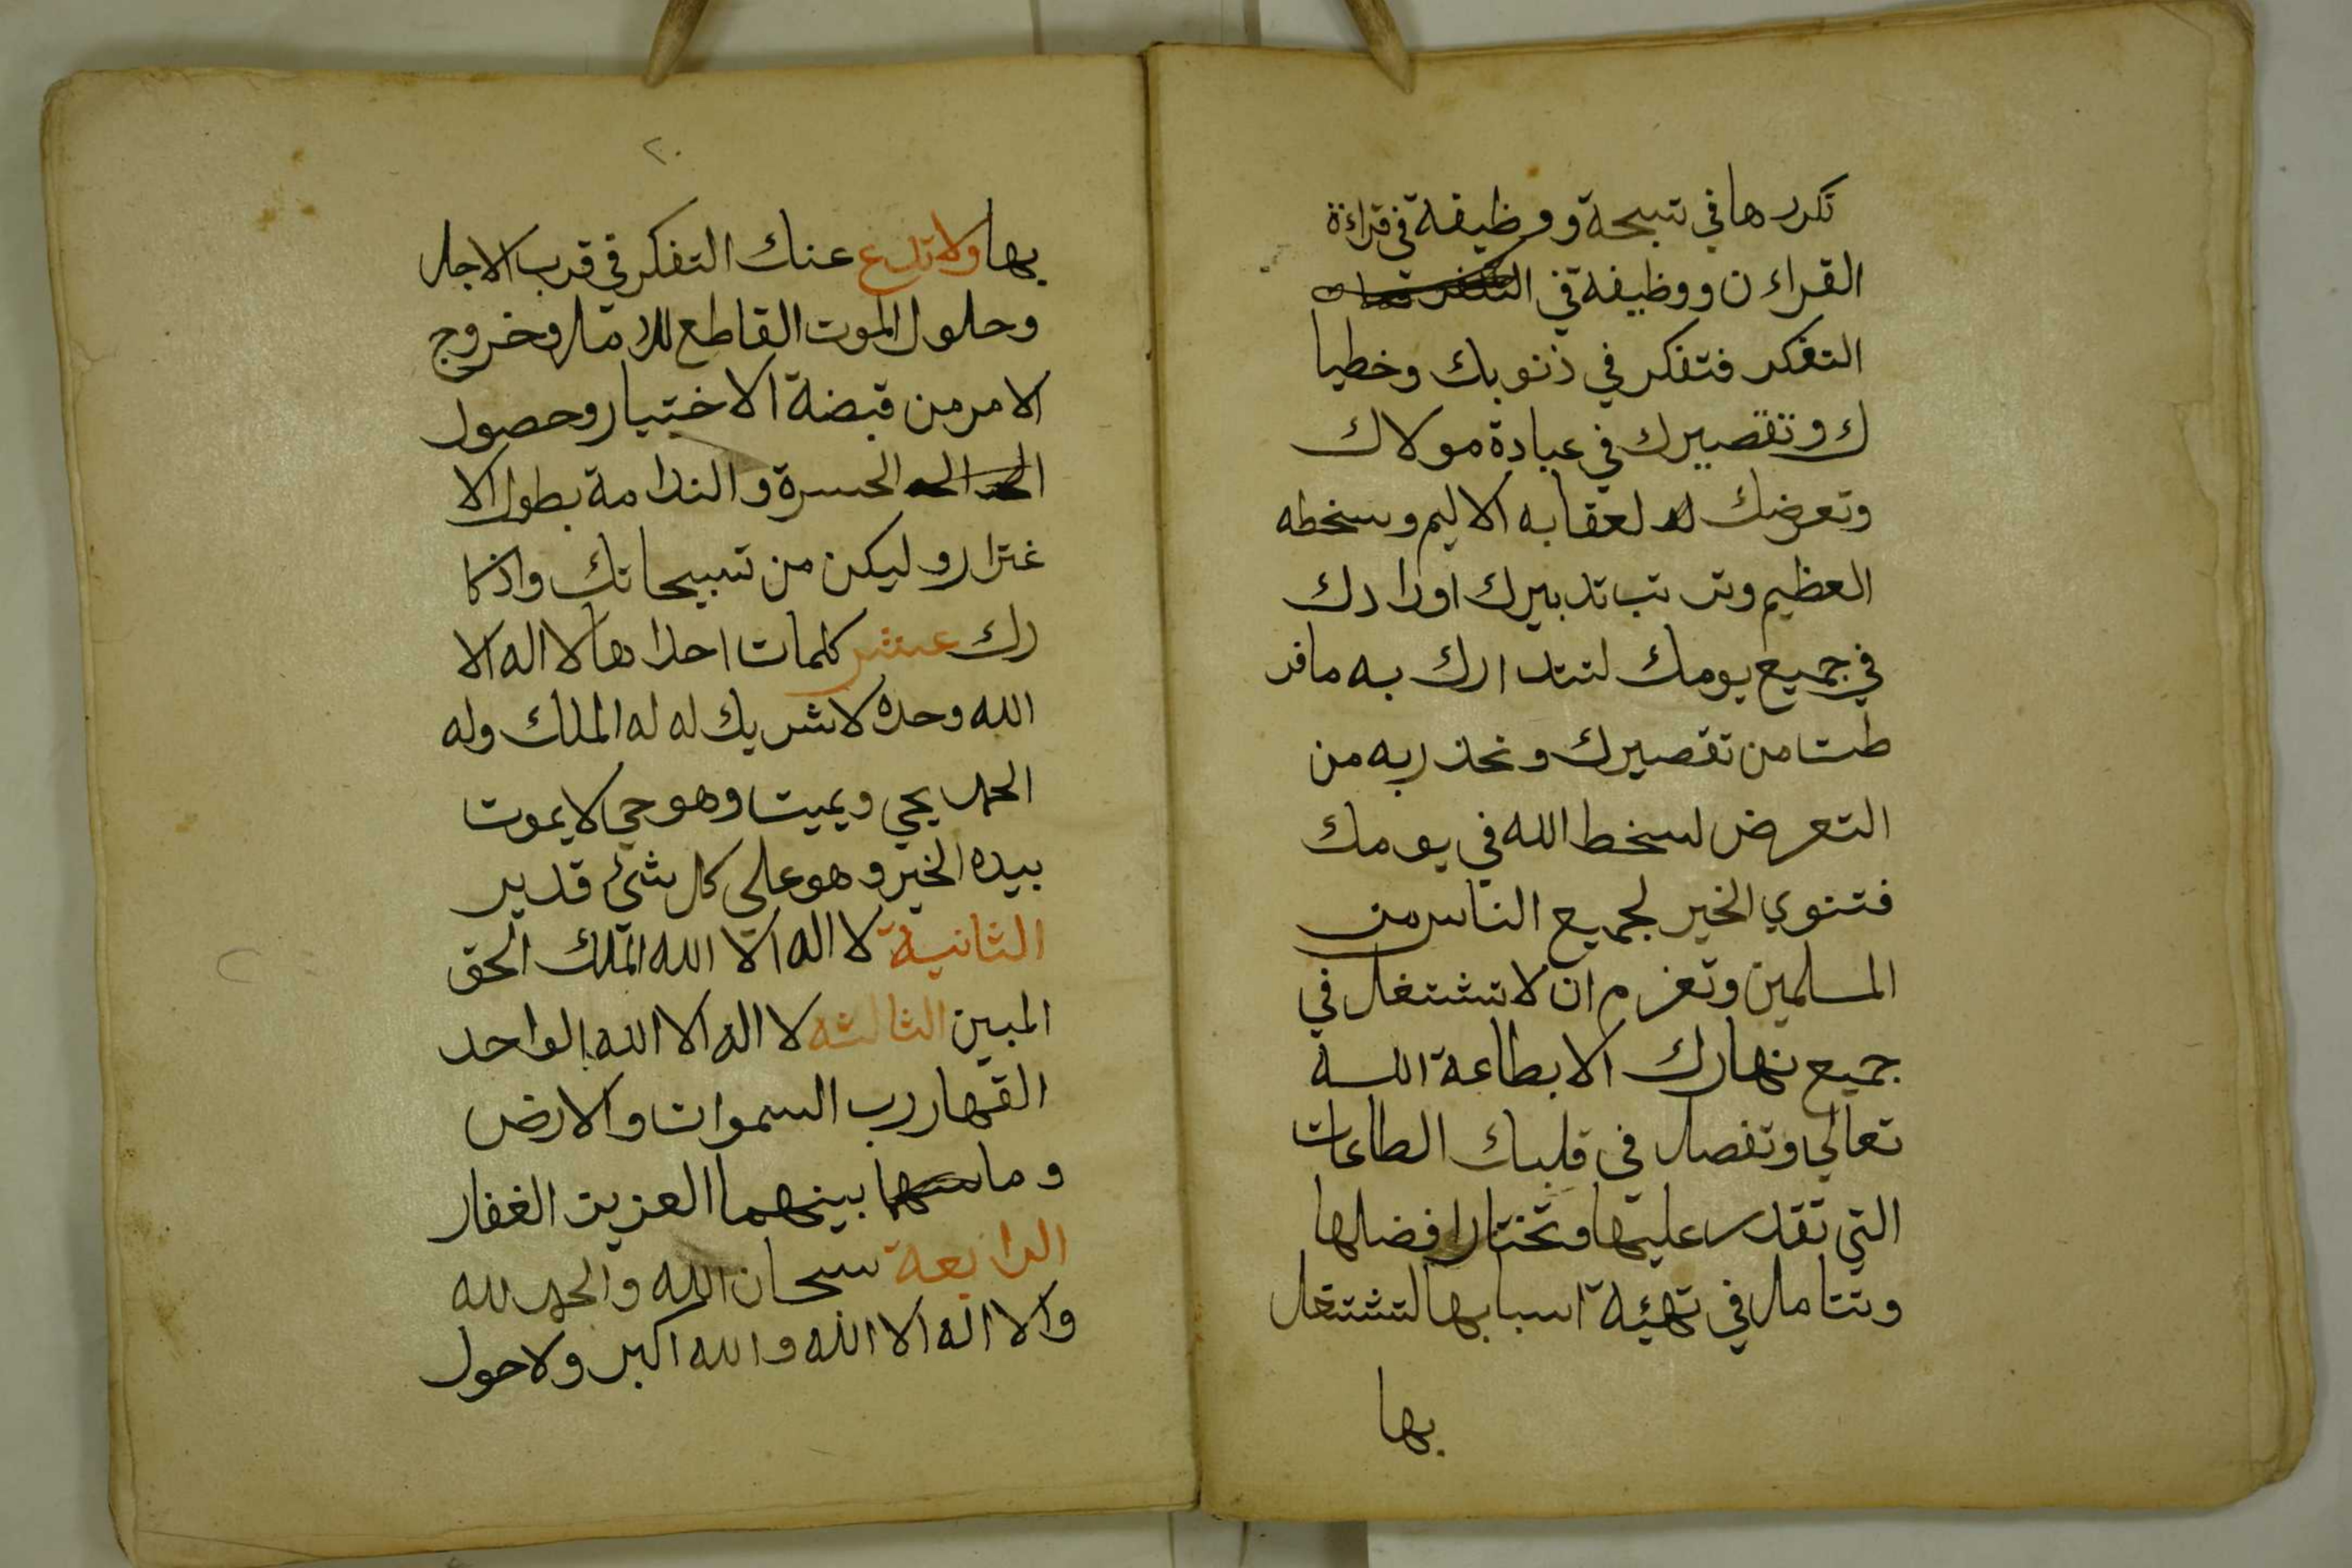 تكررها في تسبحة ووظيفة في قراءة
القراءن ووظيفة في
التفكر فتفكر في ذنوبك وخطيا
ك وتقصيرك في عبادة مولاك
وتعرضك لعقابه الاليم وسخطه
العظيم وترتب تدبيرك اورادك
في جميع يومك لتتدارك به مافر
طت من تقصيرك وتحذر به من
التعرض لسخط الله في يومك
فتنوي الخير لجميع الناس من
المسلمين وتعزم ان لا تشتغل في
جميع نهارك الا بطاعة الله
تعالي وتفصل في قلبك الطاعات
التي تقدر عليها وتختار افضلها
وتتامل في تهيئة اسبابها لتشتغل
بها
٢٠
بها ولا تدع عنك التفكر في قرب الاجل
وحلول الموت القاطع للامل وخروج
الامر من قبضة الاختيار وحصول
الحسرة والندامة بطول الا
غترار وليكن من تسبيحاتك واذكا
رك عشر كلمات احداها لا اله الا
الله وحده لا شريك له له الملك وله
الحمد يحي ويميت وهو حي لا يموت
بيده الخير وهو علي كل شئ قدير
الثانية لا اله الا الله الملك الحق
المبين الثالثه لا اله الا الله الواحد
القهار رب السموات والارض
وما بينهما العزيز الغفار
الرابعة سبحان الله والحمد لله
ولا اله الا الله والله اكبر ولا حول